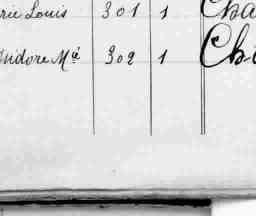 rie Louis 301 1 Cha
Isidore Mié 302 1 Ch